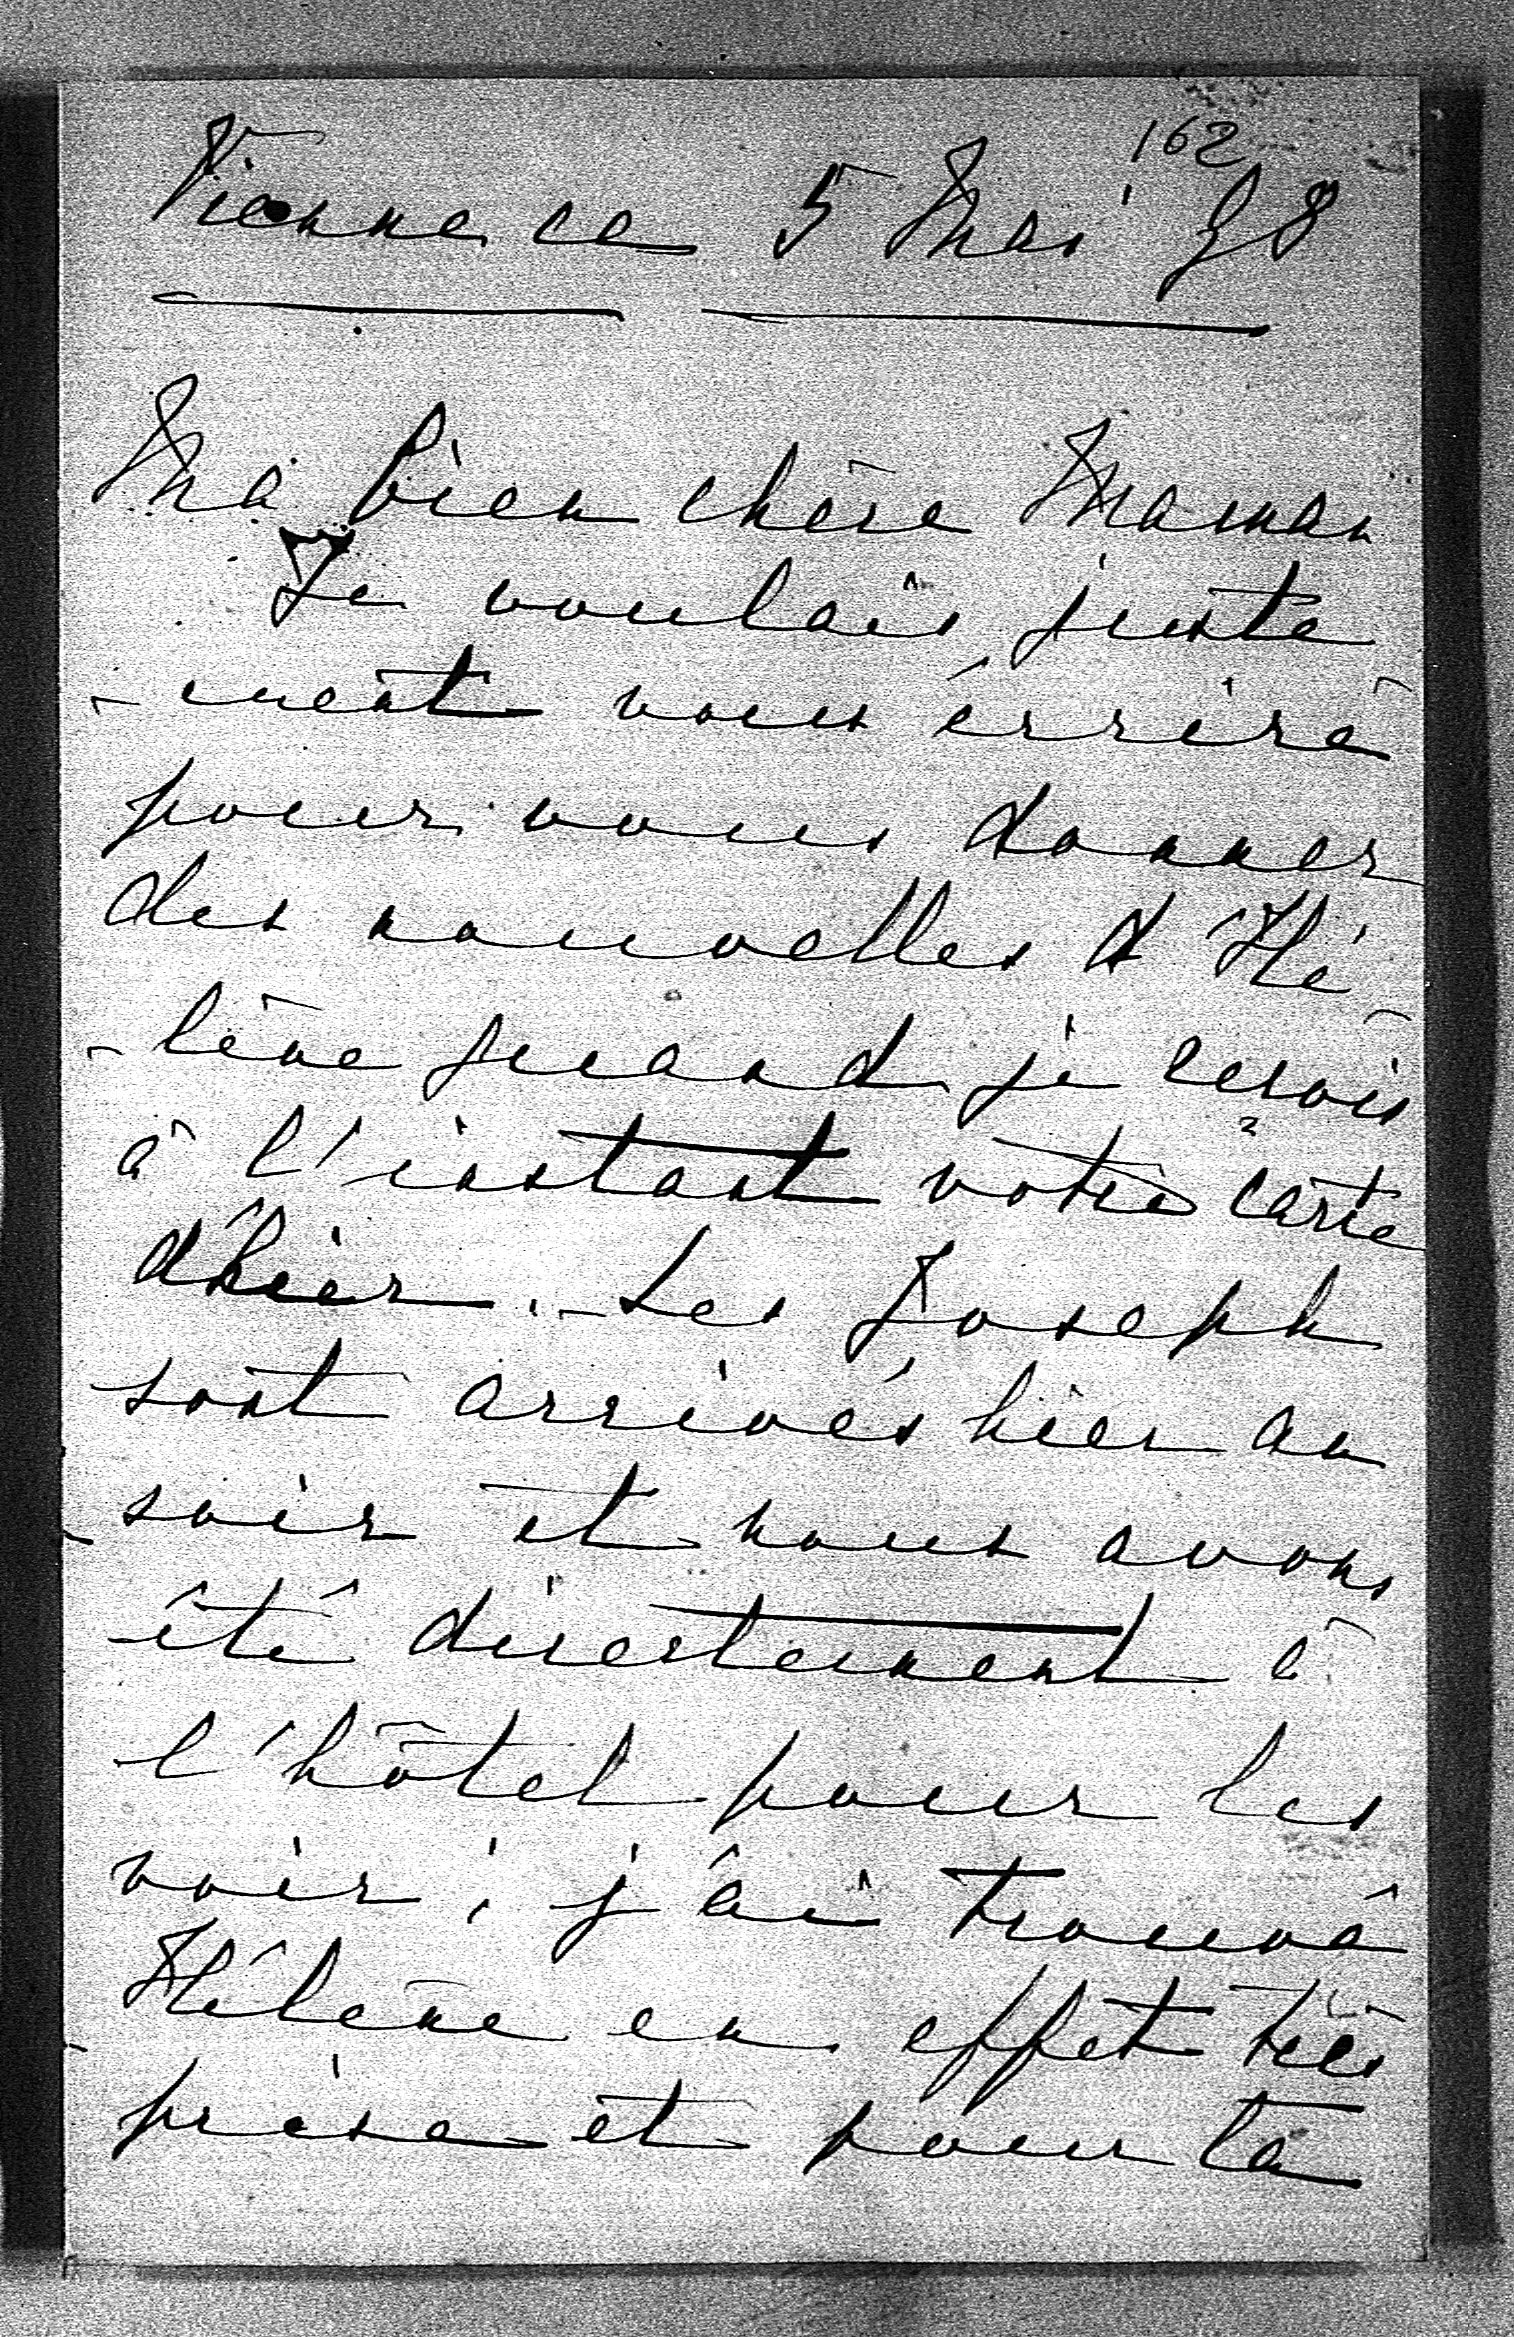 162
Vienne ce 5 Mai 98
Ma bien chère Maman
Je voulais juste
-ment vous écrire
pour vous donner
des nouvelles d'Hé
-lène quand je reçois
à l'instant votre carte
d'hier. - Les Joseph
sont arrivés hier au
soir et nous avons
été directement à
l'hôtel pour les
voir; j'ai trouvé
Hélène en effet très
prise et pour ta